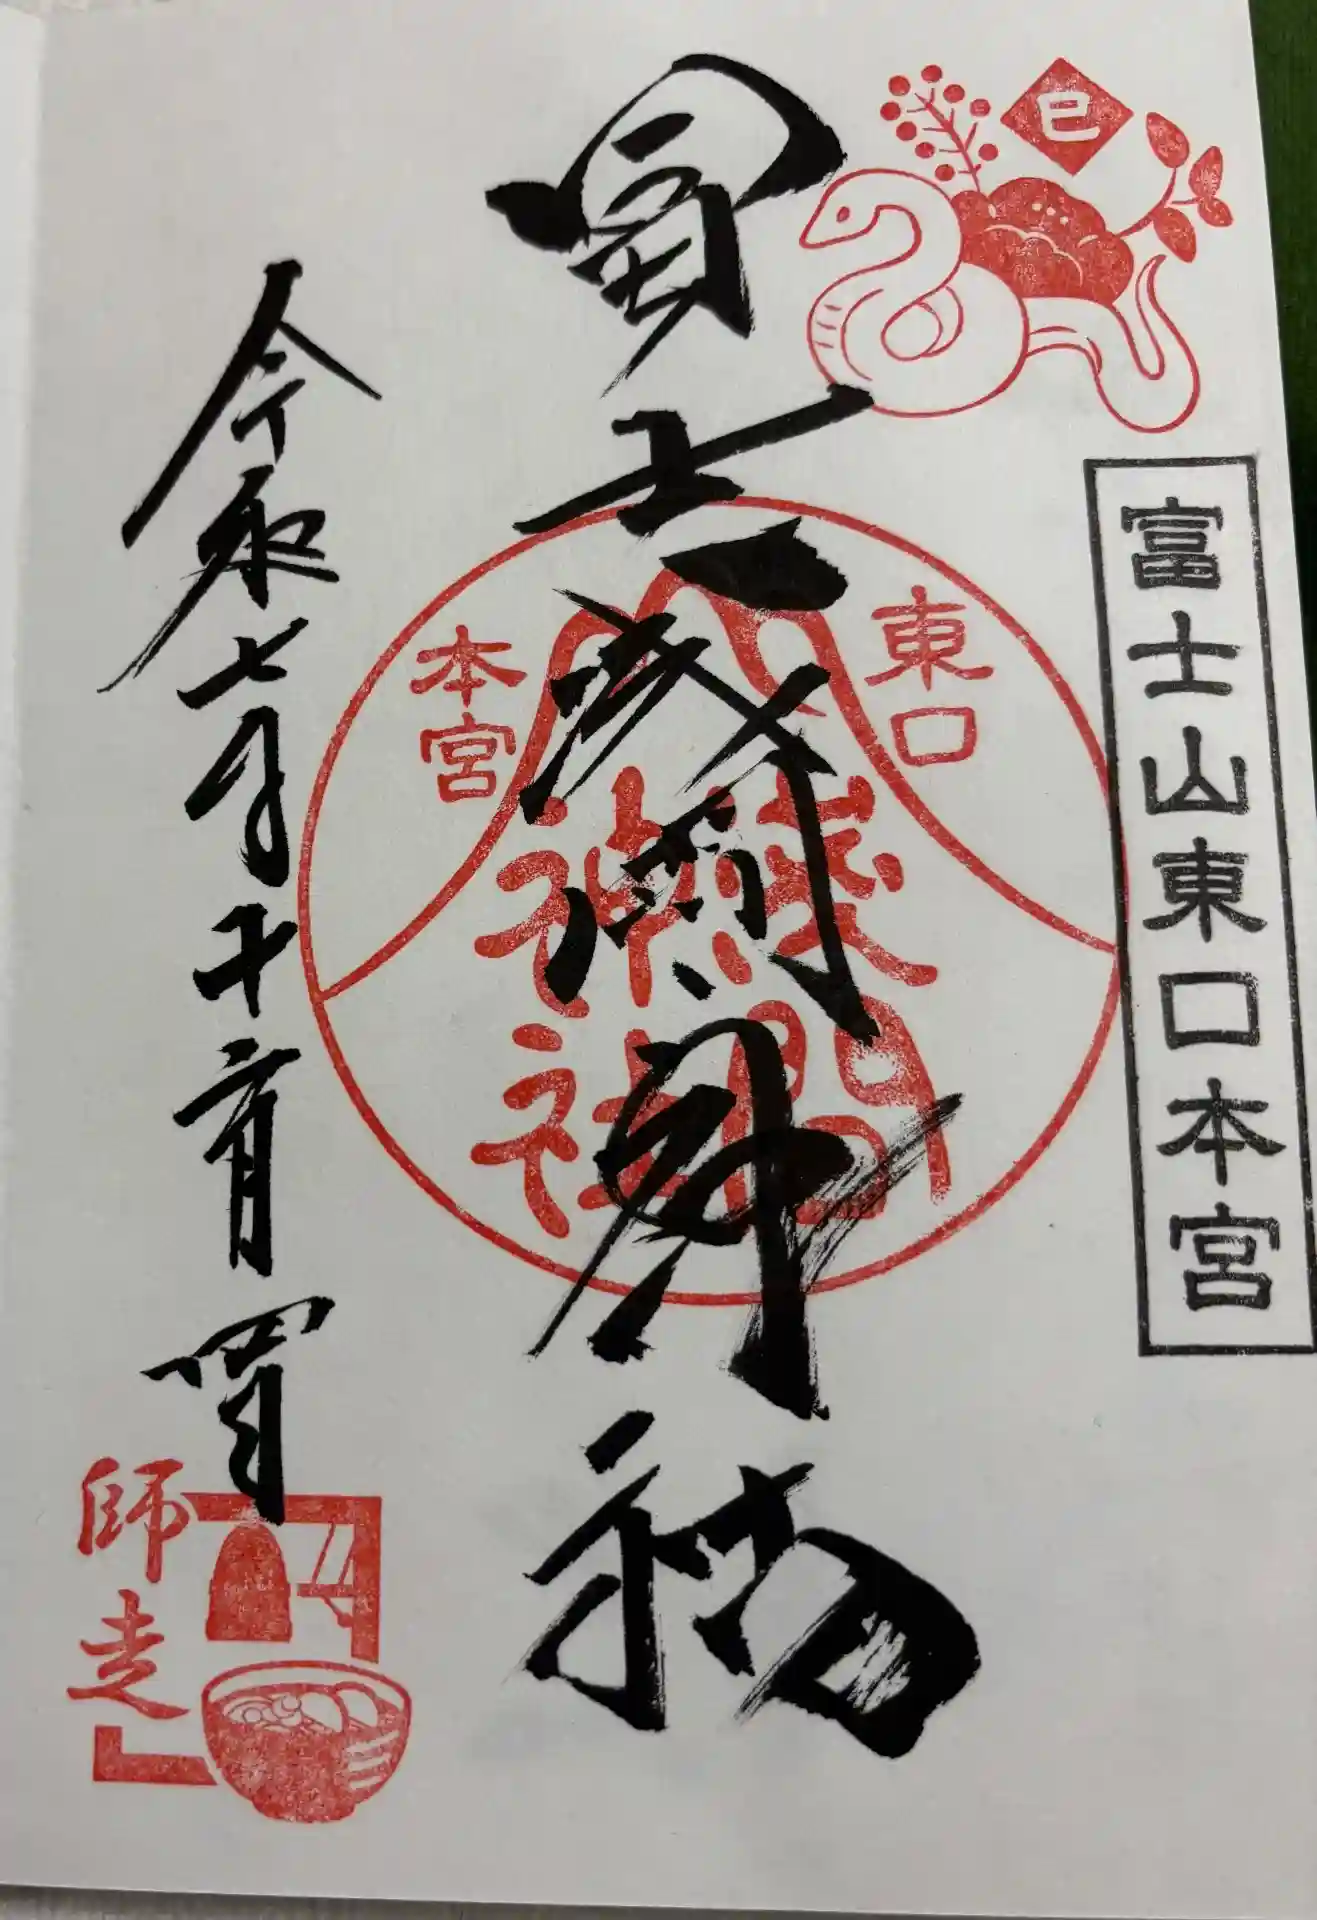 巳
富士山東口本宮
冨士浅間神社
東口
本宮
淺間
神社
令和七年十二月四日
師走